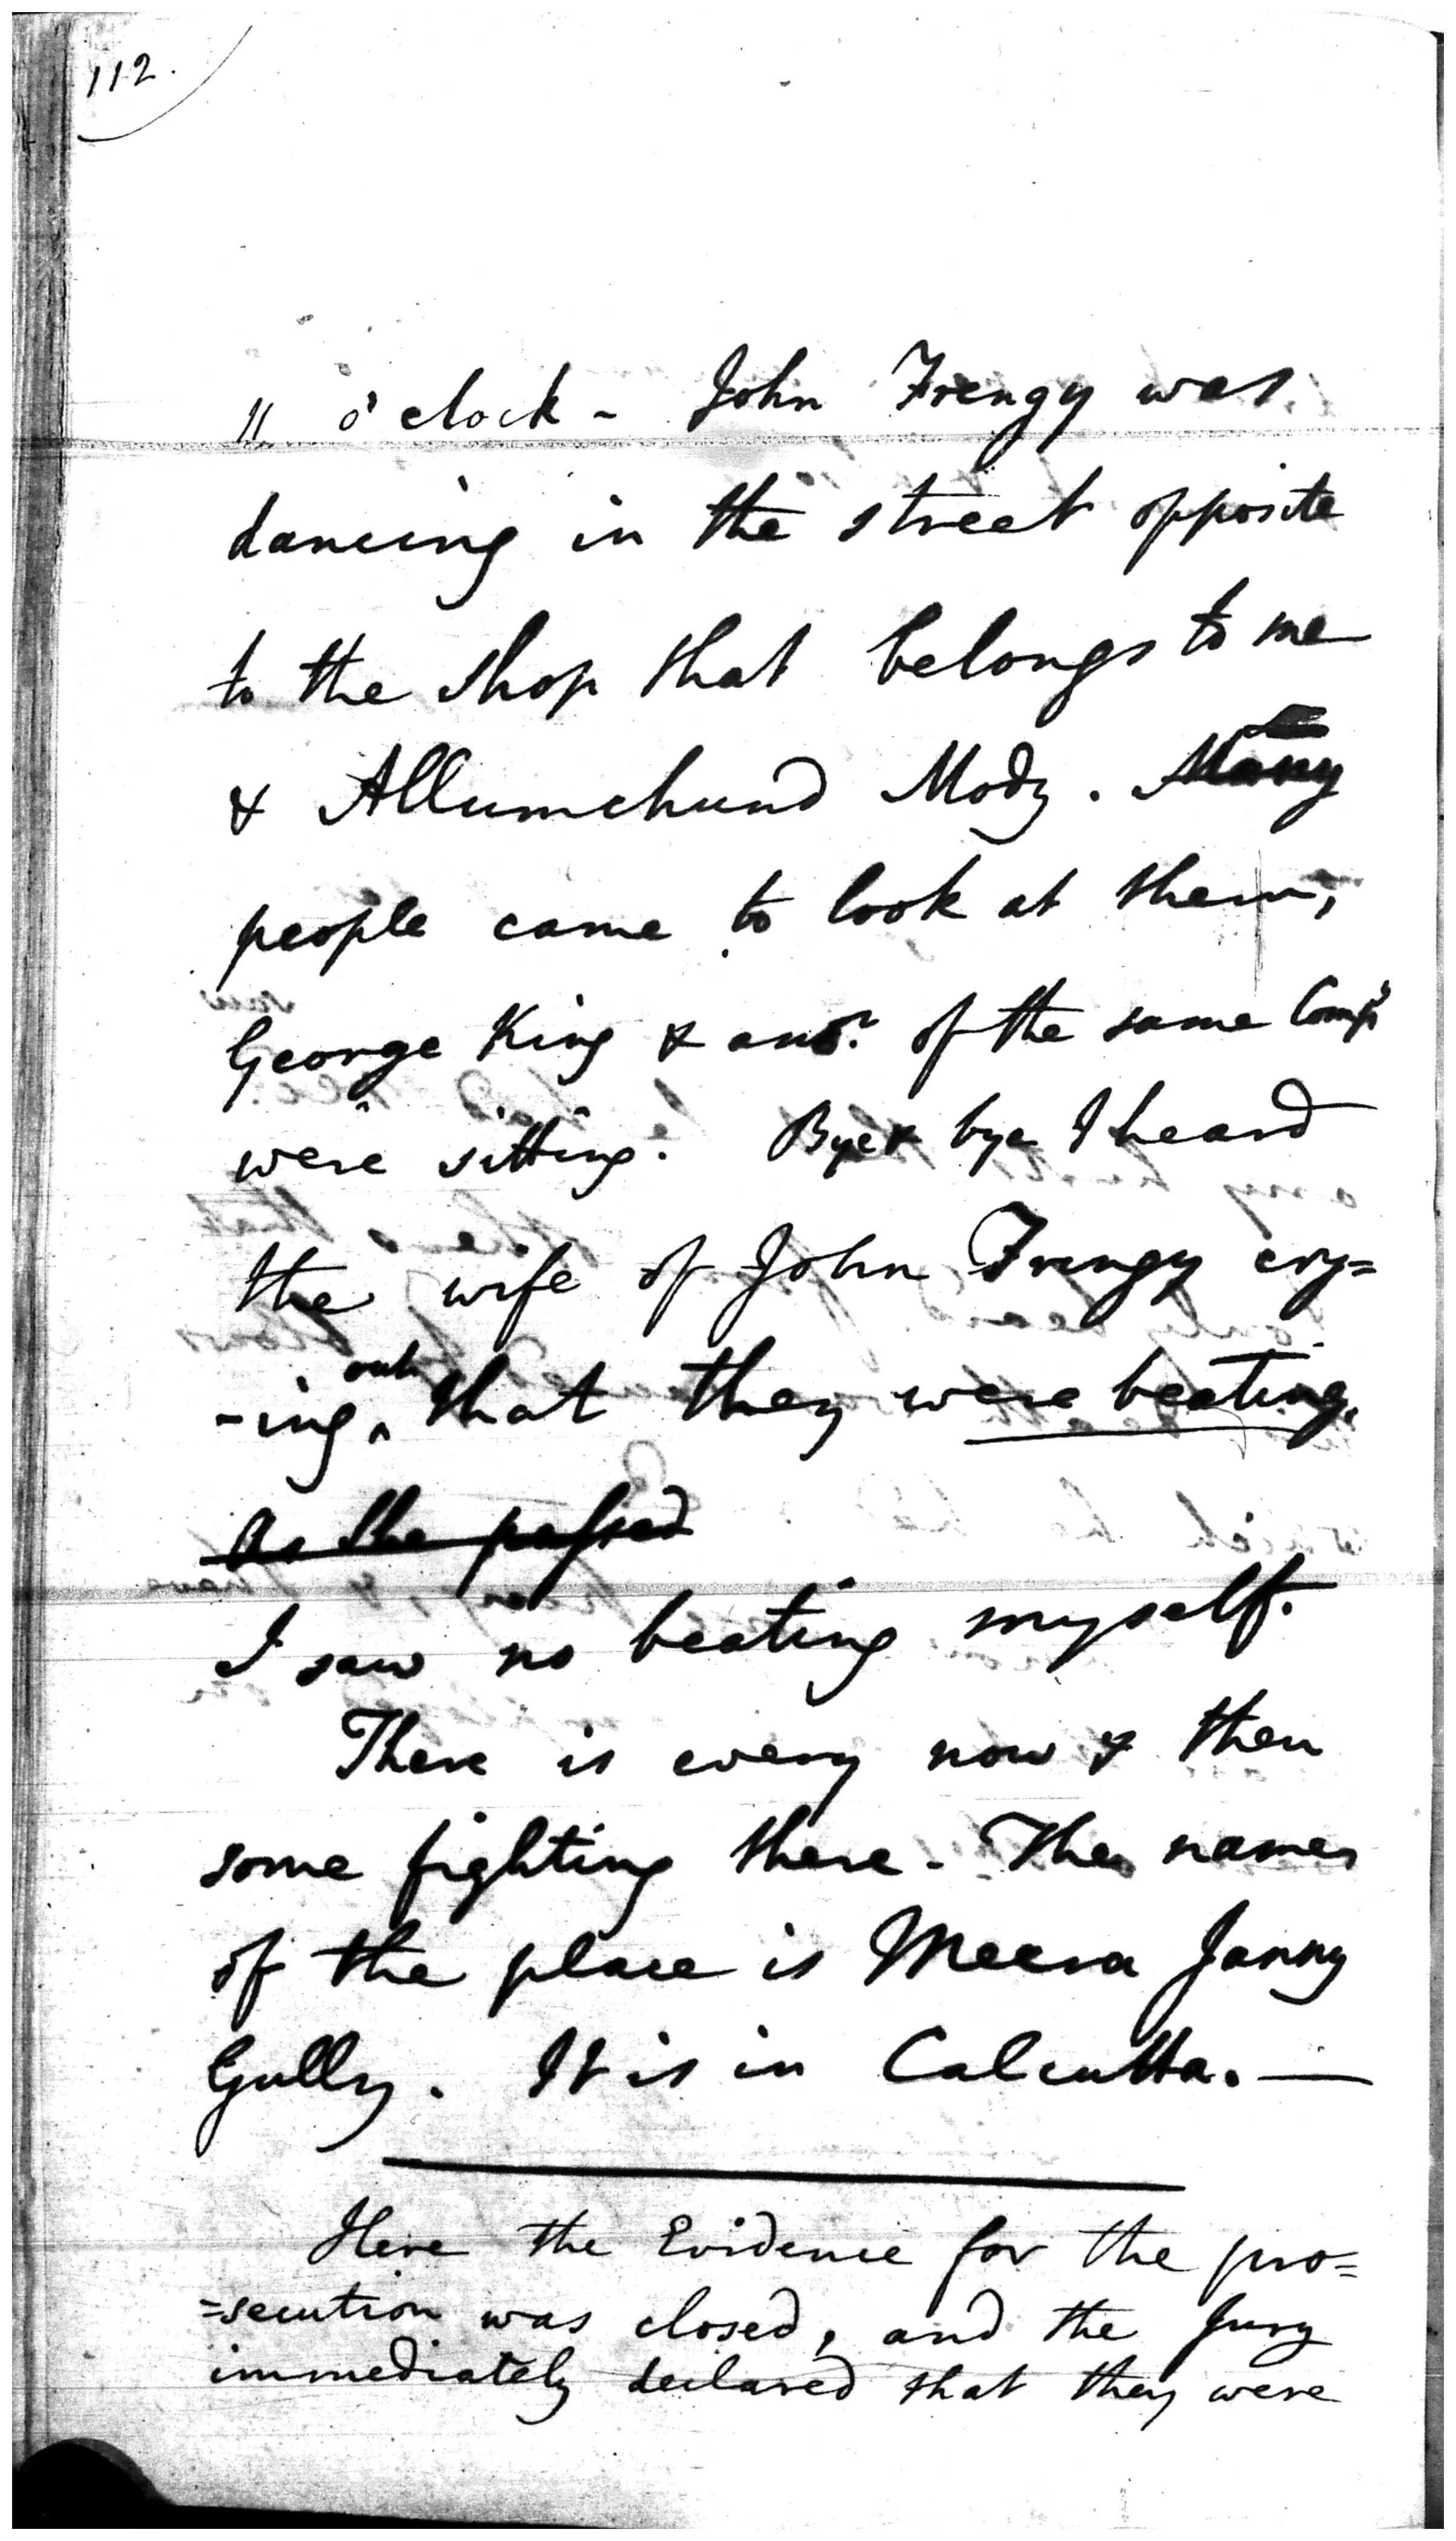 112.
11 o'clock - John Frengy was
dancing in the street opposite
to the shop that belongs to me
& Allumchund Mody. Many
people came to look at them,
George King & anor. of the same Compy
were sitting. Bye & bye I heard
the wife of John Frengy cry=
-ing out that they were beating.
As she passed
I saw no beating myself.
There is every now & then
some fighting there. The names
of the place is Meera Janny
Gully. It is in Calcutta. —
Here the Evidence for the pro=
=secution was closed, and the Jury
immediately declared that they were